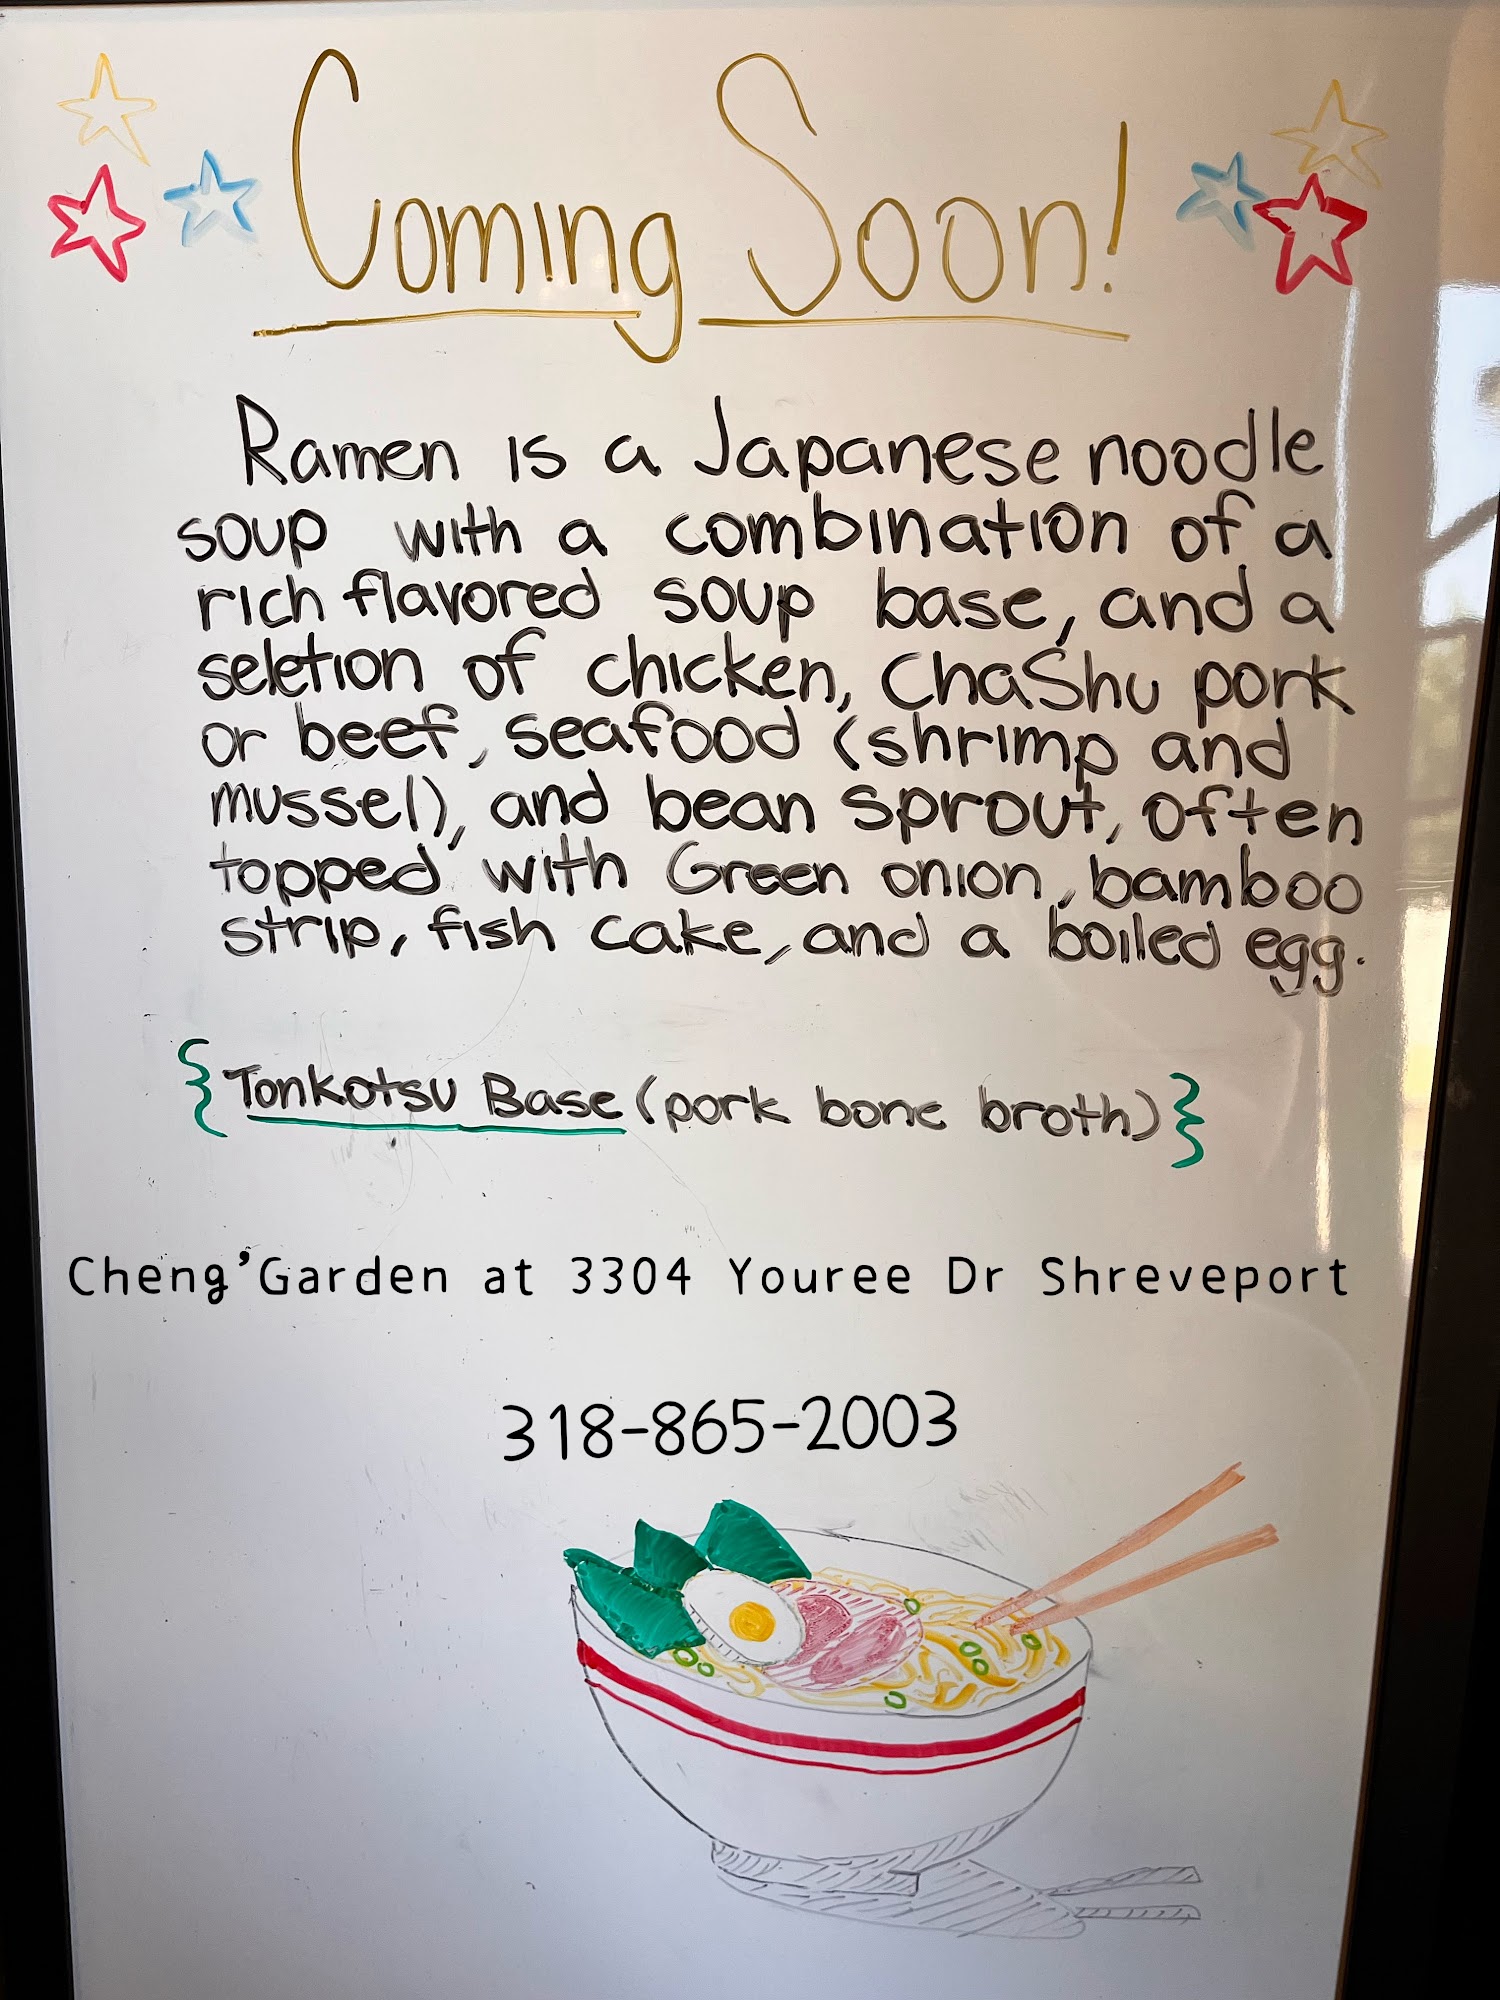 Coming Soon!
Ramen is a Japanese noodle
soup with a combination of a
rich flavored soup base, and a
seletion of chicken, ChaShu pork
or beef, seafood (shrimp and
mussel), and bean sprout, often
topped with Green onion, bamboo
strip, fish cake, and a boiled egg.
{Tonkotsu Base (pork bone broth)}
Cheng'Garden at 3304 Youree Dr Shreveport
318-865-2003